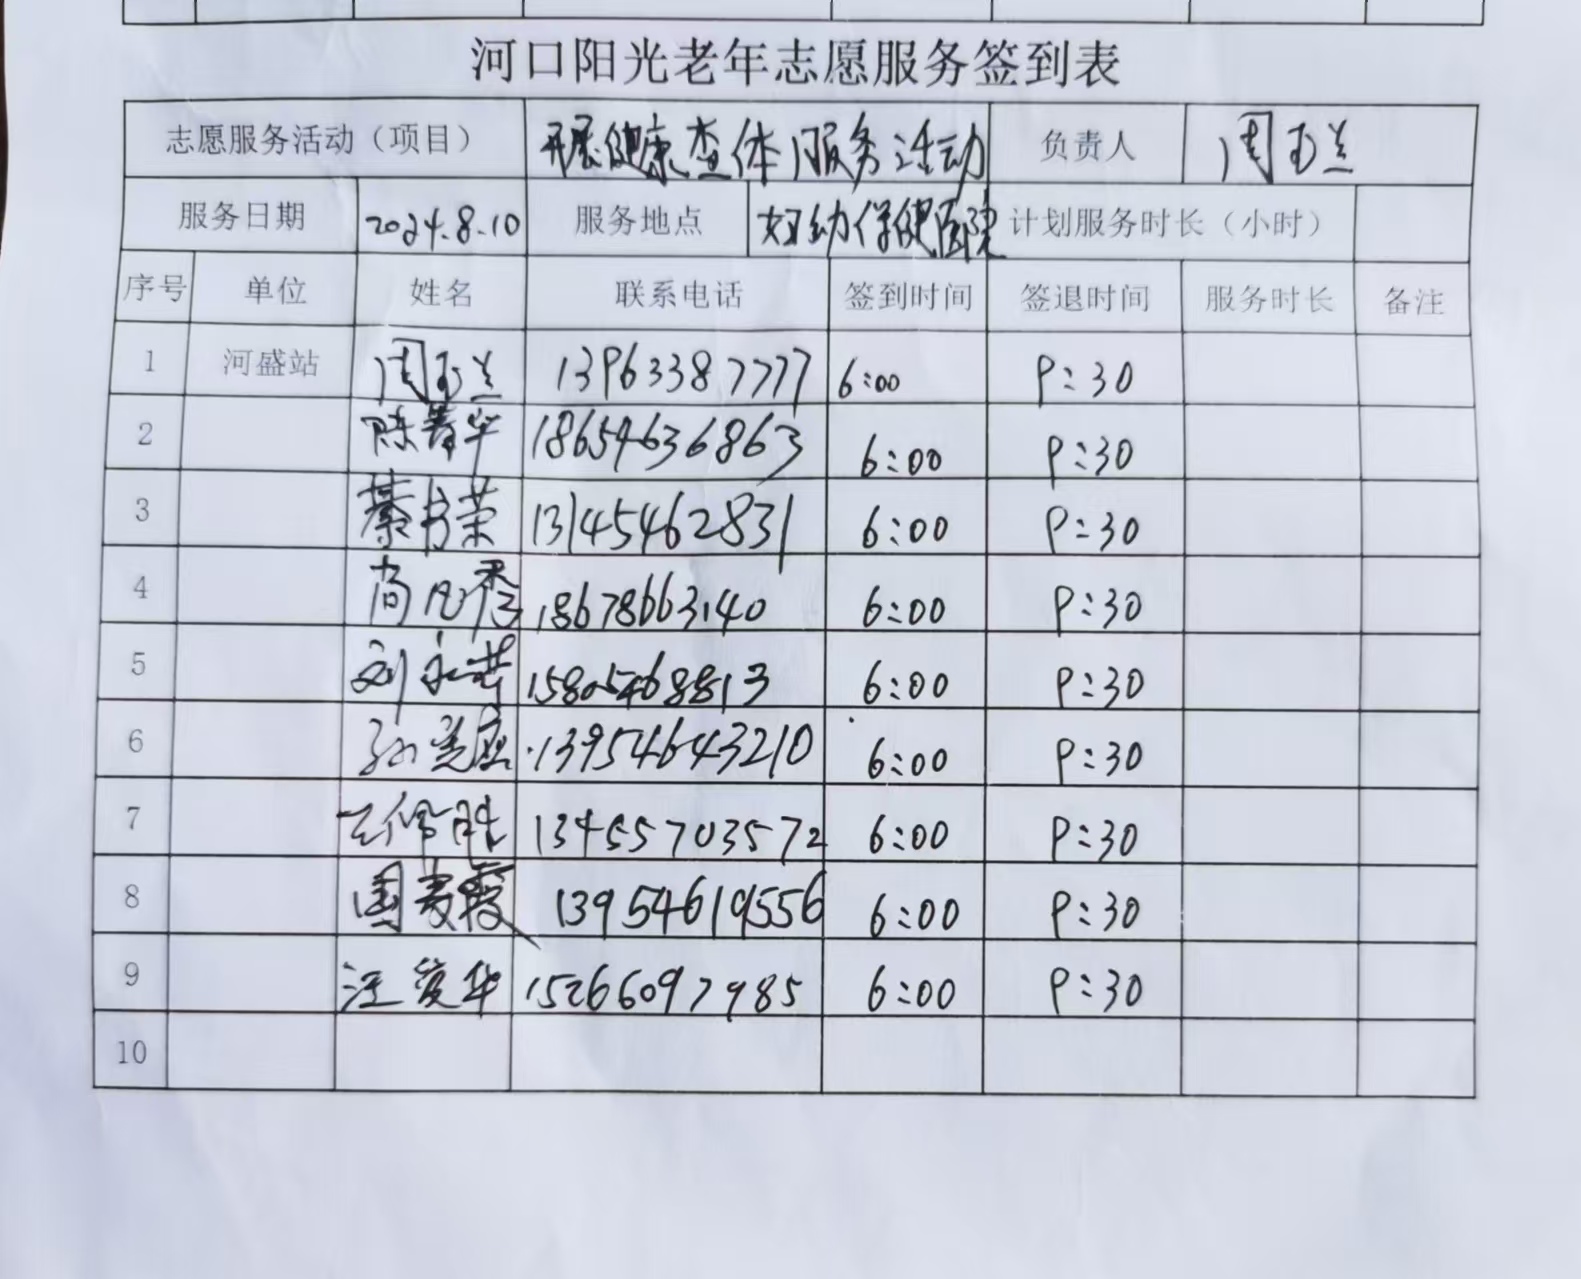 河口阳光老年志愿服务签到表
志愿服务活动（项目） 开展健康查体服务活动 负责人 周玉兰
服务日期 2024.8.10 服务地点 妇幼保健医院 计划服务时长（小时）
序号 单位 姓名 联系电话 签到时间 签退时间 服务时长 备注
1 河盛站 周玉兰 13963387777 6:00 9:30
2 陈青华 18654636863 6:00 9:30
3 綦书荣 13145462831 6:00 9:30
4 尚凡秀 18678663140 6:00 9:30
5 刘永芹 15805468813 6:00 9:30
6 孙 13954643210 6:00 9:30
7 13455703572 6:00 9:30
8 国秀霞 13954619556 6:00 9:30
9 汪爱华 15266097985 6:00 9:30
10